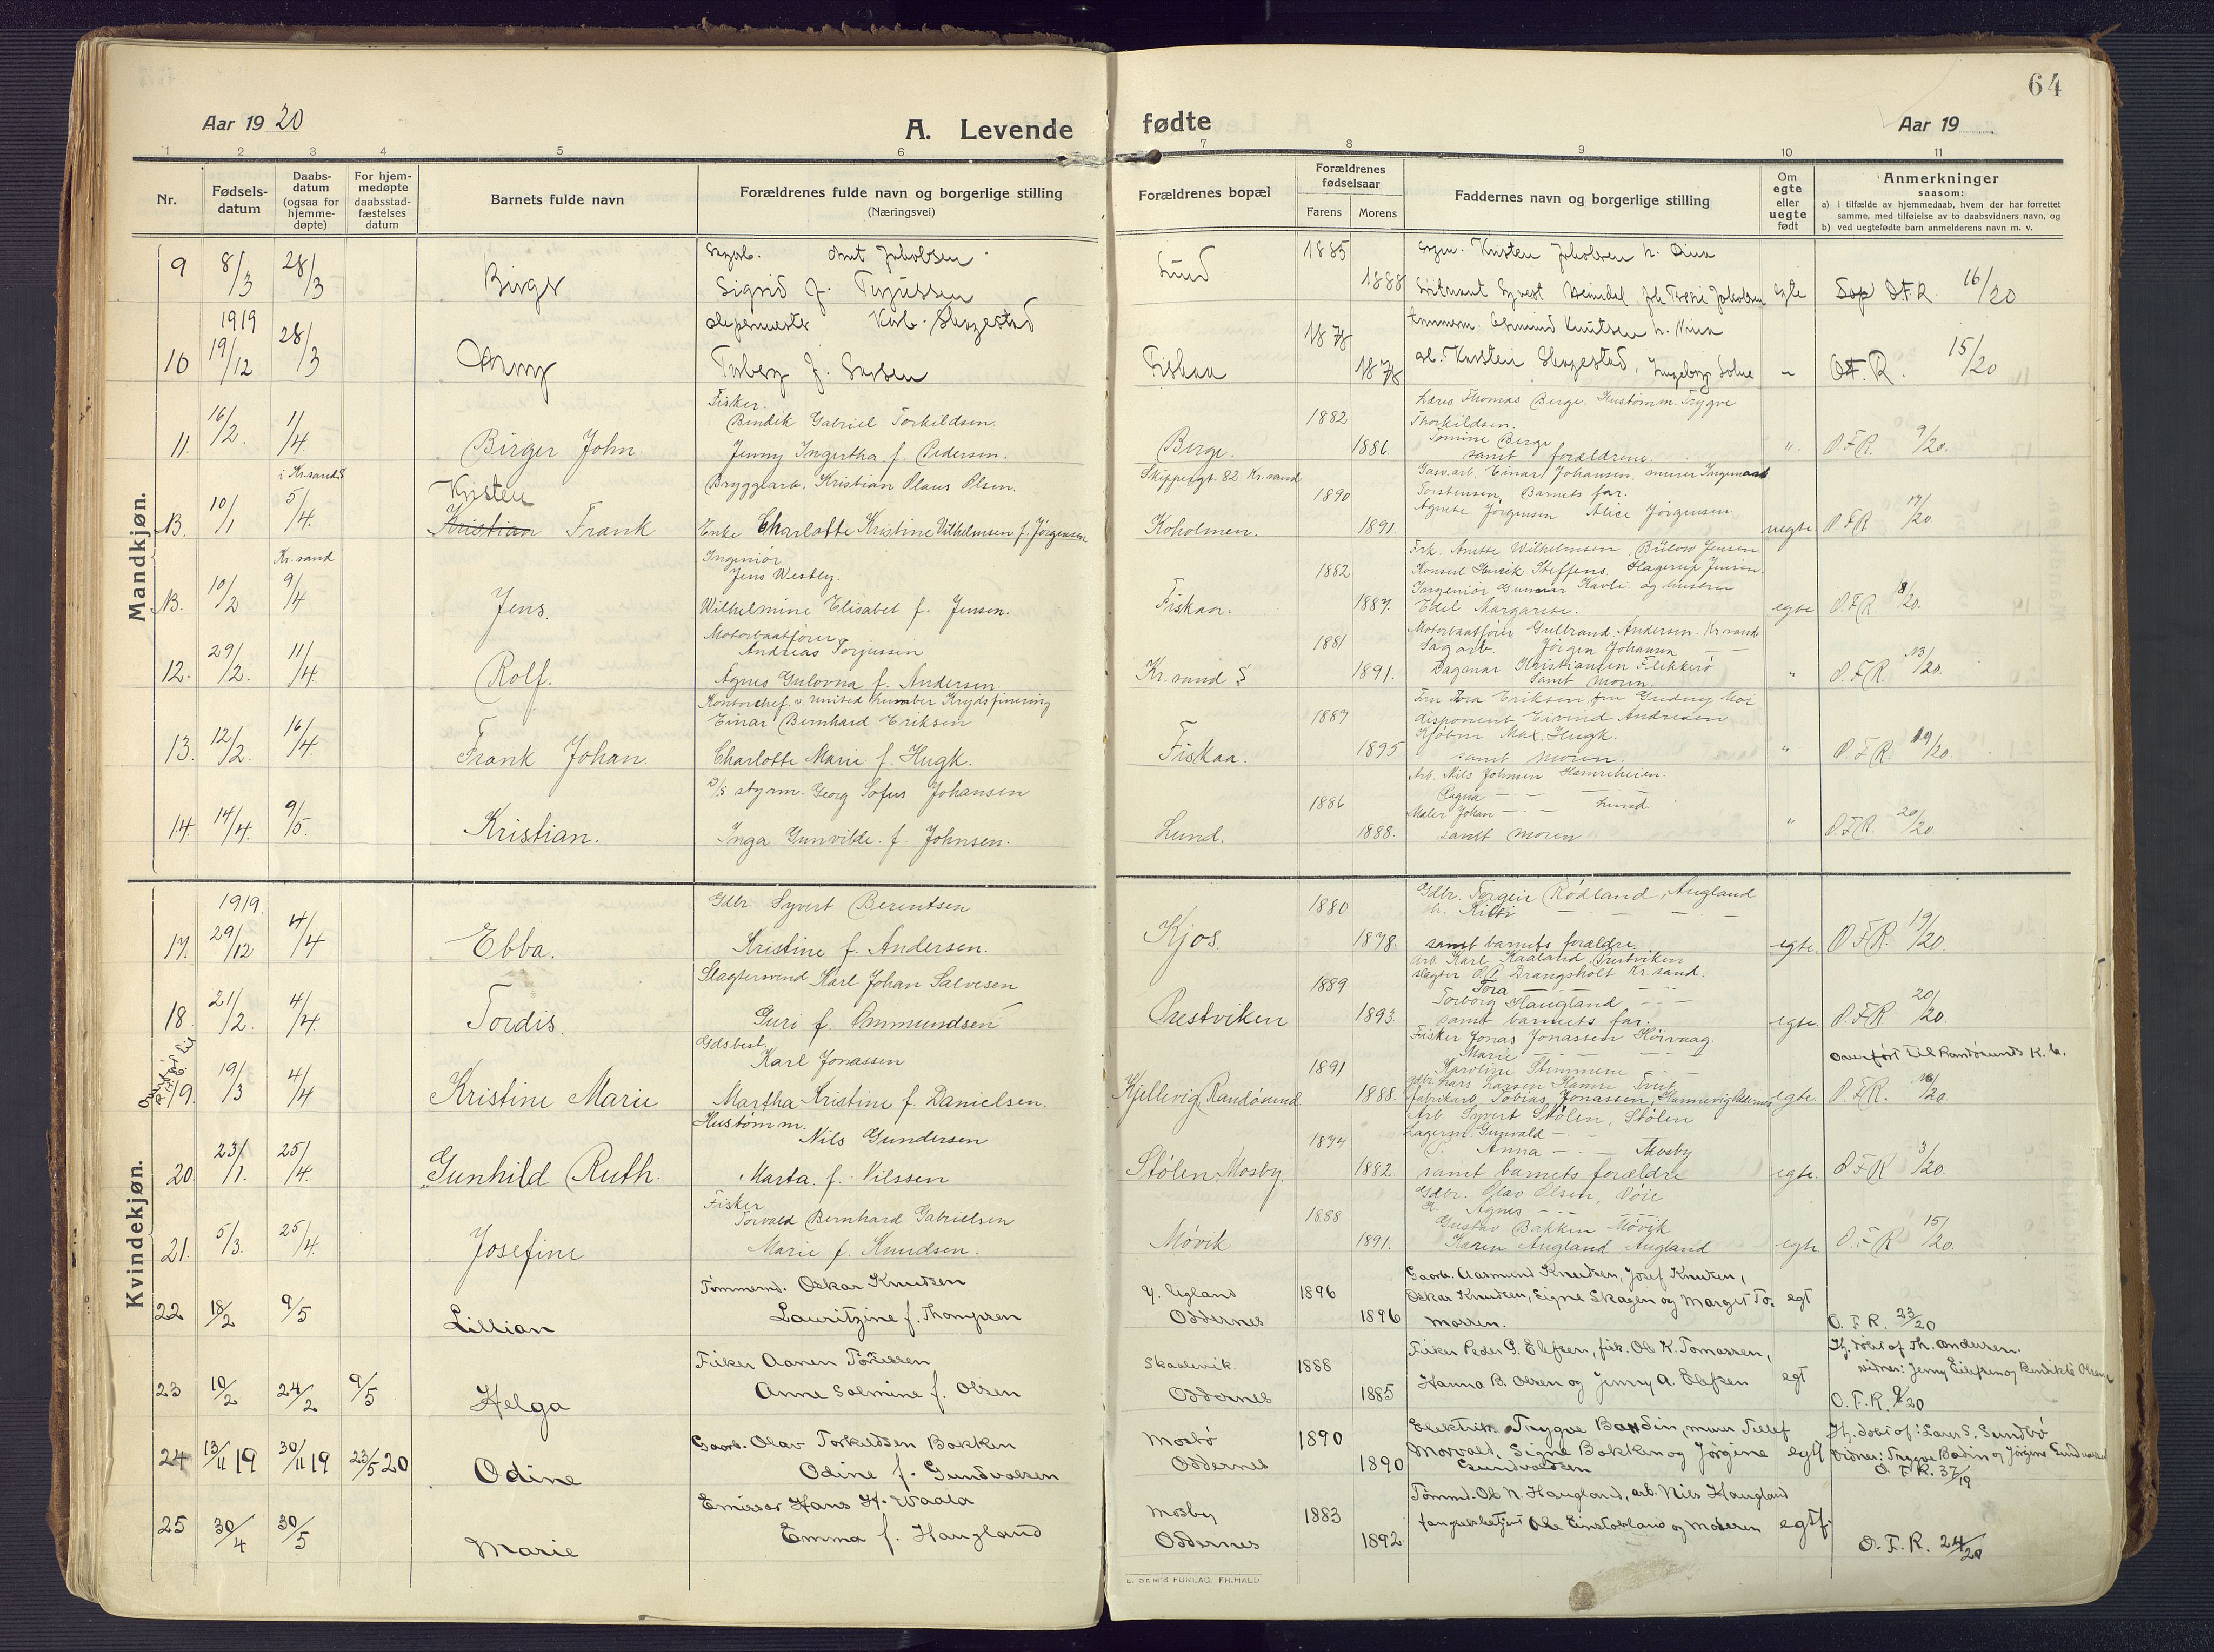 64
Aar 1920
A. Levende fødte
Aar 19
1 2 3 4 5 6 7 8 9 10 11
Nr.
Fødsels-
datum
Daabs-
datum
(ogsaa for
hjemme-
døpte)
For hjem-
medøpte
daabsstad-
fæstelses
datum
Barnets fulde navn
Forældrenes fulde navn og borgerlige stilling
(Næringsvei)
Forældrenes bopæl
Forældrenes
fødselsaar
Farens Morens
Faddernes navn og borgerlige stilling
Om
egte
eller
uegte
født
Anmerkninger
saasom:
a) i tilfælde av hjemmedaab, hvem der har forrettet
samme, med tilføielse av to daabsvidners navn, og
b) ved uegtefødte barn anmelderens navn m. v.
Mandkjøn.
9 8/3 28/3 Birger
Jakobsen
Sigrid f. Terjussen
Lund 1885 1888
egte O.F.R. 16/20
10 1919 19/12 28/3
Skagestad
Fiskaa 1878 1878
O.F.R. 15/20
11. 16/2. 1/4. Birger John
Fisker.
Bendik Gabriel Torkildsen.
Jenny Ingertha f. Pedersen.
Berge. 1882 1886.
Lærer Thomas Berge. Hustømm. Trygve
Thorkildsen.
Tomine Berge
samt forældrene.
" O.F.R. 9/20.
i Kr.sand S
B. 10/1 5/4. Kristen
Kristian Frank
Bryggearb. Kristian Olaus Olsen.
Enke Charlotte Kristine Vilhelmsen f. Jørgensen
Skippergt. 82 Kr.sand
Koholmen. 1890 1891.
Gasv.arb. Einar Johansen, murer
Torstensen, Barnets far.
Agnete Jørgensen Alice Jørgensen
uegte. O.F.R. 17/20.
Kr.sand
B. 10/2 9/4 Jens.
Ingeniør
Jens Westby.
Wilhelmine Elisabet f. Jensen.
Fiskaa. 1882 1887.
Frk. Anette Wilhelmsen, Bülow Jensen
Konsul Henrik Steffens, Hagerup Jensen.
Ingeniør Gunnar Kavli og hustru
Edel Margarete.
egte O.F.R. 8/20.
12. 29/2. 11/4. Rolf.
Motorbaatfører
Andreas Torjussen
Agnes Gulovna f. Andersen.
Kr.sand S 1881 1891.
Motorbaatfører Gulbrand Andersen. Kr.sand
Sagarb. Jørgen Johansen — —
Dagmar Kristiansen Flekkerö
samt moren.
" O.F.R. 13/20.
13. 12/2. 16/4. Frank Johan
Kontorchef. v. United
Einar Bernhard Eriksen
Charlotte Marie f. Hugk.
Fiskaa. 1887 1895
Fru Tora Eriksen fru Gudny Moi
disponent Eivind Andresen
Kjøbm Max. Hugk.
samt moren.
" O.F.R. 19/20.
14 14/4. 9/5. Kristian.
D/s styrm. Georg Sofus Johansen
Inga Gunvilde. f. Johnsen.
Lund. 1886 1888.
Arb. Nils Johnsen Hamreheien.
Ragna — — —
Maler Johan — — Lund
samt moren
" O.F.R. 20/20.
Kvindekjøn.
17. 1919. 29/12 4/4 Ebba.
Gdbr. Syvert Berentsen
Kristine f. Andersen.
Kjos. 1880 1878.
Gdbr. Torgeir Rødland, Augland
h. Kitti — — —
samt barnets forældre.
egte. O.F.R. 19/20.
18. 21/2. 4/4 Tordis.
Slagtersvend Karl Johan Salvesen
Guri f. Ommundsen
Prestviken 1889 1893.
Arb Karl Kaaland, Prestviken
slagter O.P. Drangsholt Kr.sand.
Tora — — —
Torborg Haugland — —
samt barnets far.
egte. O.F.R. 20/20.
19. 19/3 4/4 Kristine Marie
Gdsbest.
Karl Jonassen
Martha Kristine f. Danielsen.
Kjellevig Randøsund 1891 1888.
Fisker Jonas Jonassen Høivaag
Marie — — —
Karoline Stimmene — —
gdbr. Lars Larsen Hamre Tveit
fabrikarb. Tobias Jonassen, Hannevig
egte. Overført til Randøsunds K.b.
O.F.R. 10/20
20. 23/1. 25/4. Gunhild Ruth.
Hustømm.
Nils Gundersen
Marta f. Nilssen
Stølen Mosby 1874 1882.
Arb. Syvert Stølen, Stølen
Lagerm. Gunvald — —
Anna — — Mosby
samt barnets forældre
egte. O.F.R. 3/20.
21. 5/3. 25/4. Josefine
Fisker
Torvald Bernhard Gabrielsen
Marie f. Knudsen.
Møvik 1888 1891.
Gdbr. Olav Olsen, Vøie
h. Agnes — —
Gustav Bakken Møvik
Karen Augland Augland
egte O.F.R 15/20.
22 18/2 9/5 Lillian
Tømmermd. Oskar Knudsen
Lauritzine f. Thompsen
Oddernes 1896 1896
Gaarb. Aasmund Knudsen, Josef Knudsen,
Oskar Knudsen, Signe Skagen og Margit
Moren.
egt O.F.R. 23/20
23 10/2 24/2 9/5 Helga
Fisker Aanen
Anne Salmine f. Olsen
Skaalevik.
Oddernes 1888 1885
Fisker Peder G. Elefsen, fisk. Ole K. Tomassen,
Hanna B. Olsen og Jenny A. Elefsen
egt Hj. døbt af Th. Andersen.
O.F.R. 9/20
24 13/11 19 30/11 19 23/5 20 Odine
Gaarb. Olav Torkildsen Bakken
Odine f. Gundvalsen
Mosbø
Oddernes 1890 1890
Elektrik. Trygve Bordin, murer Tellef
Morvald, Signe Bakken og Jørgine
Gundvaldsen
egtf Hj. døbt af: Lars S. Sundbø
O.F.R. 37/19
25 30/4 30/5 Marie
Emissær Hans H. Waala
Emma f. Haugland
Mosby
Oddernes 1883 1892
Tømmd. Ole N. Haugland, arb. Nils Haugland
fængselsbetjent Ole Einstabland og Moderen
egtf. O.F.R. 24/20
E. SEM'S FORLAG. FR.HALD